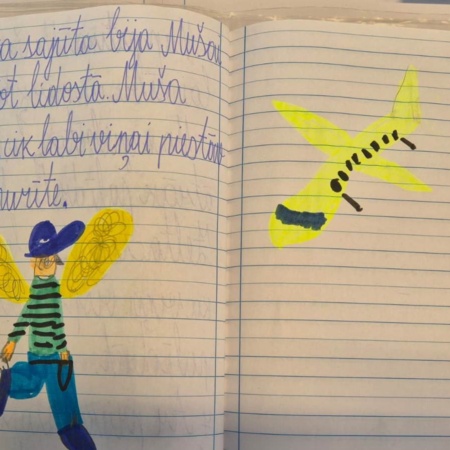 a sajūta bija Mušai
ot lidostā. Muša
cik labi viņai piestāv
urīte.